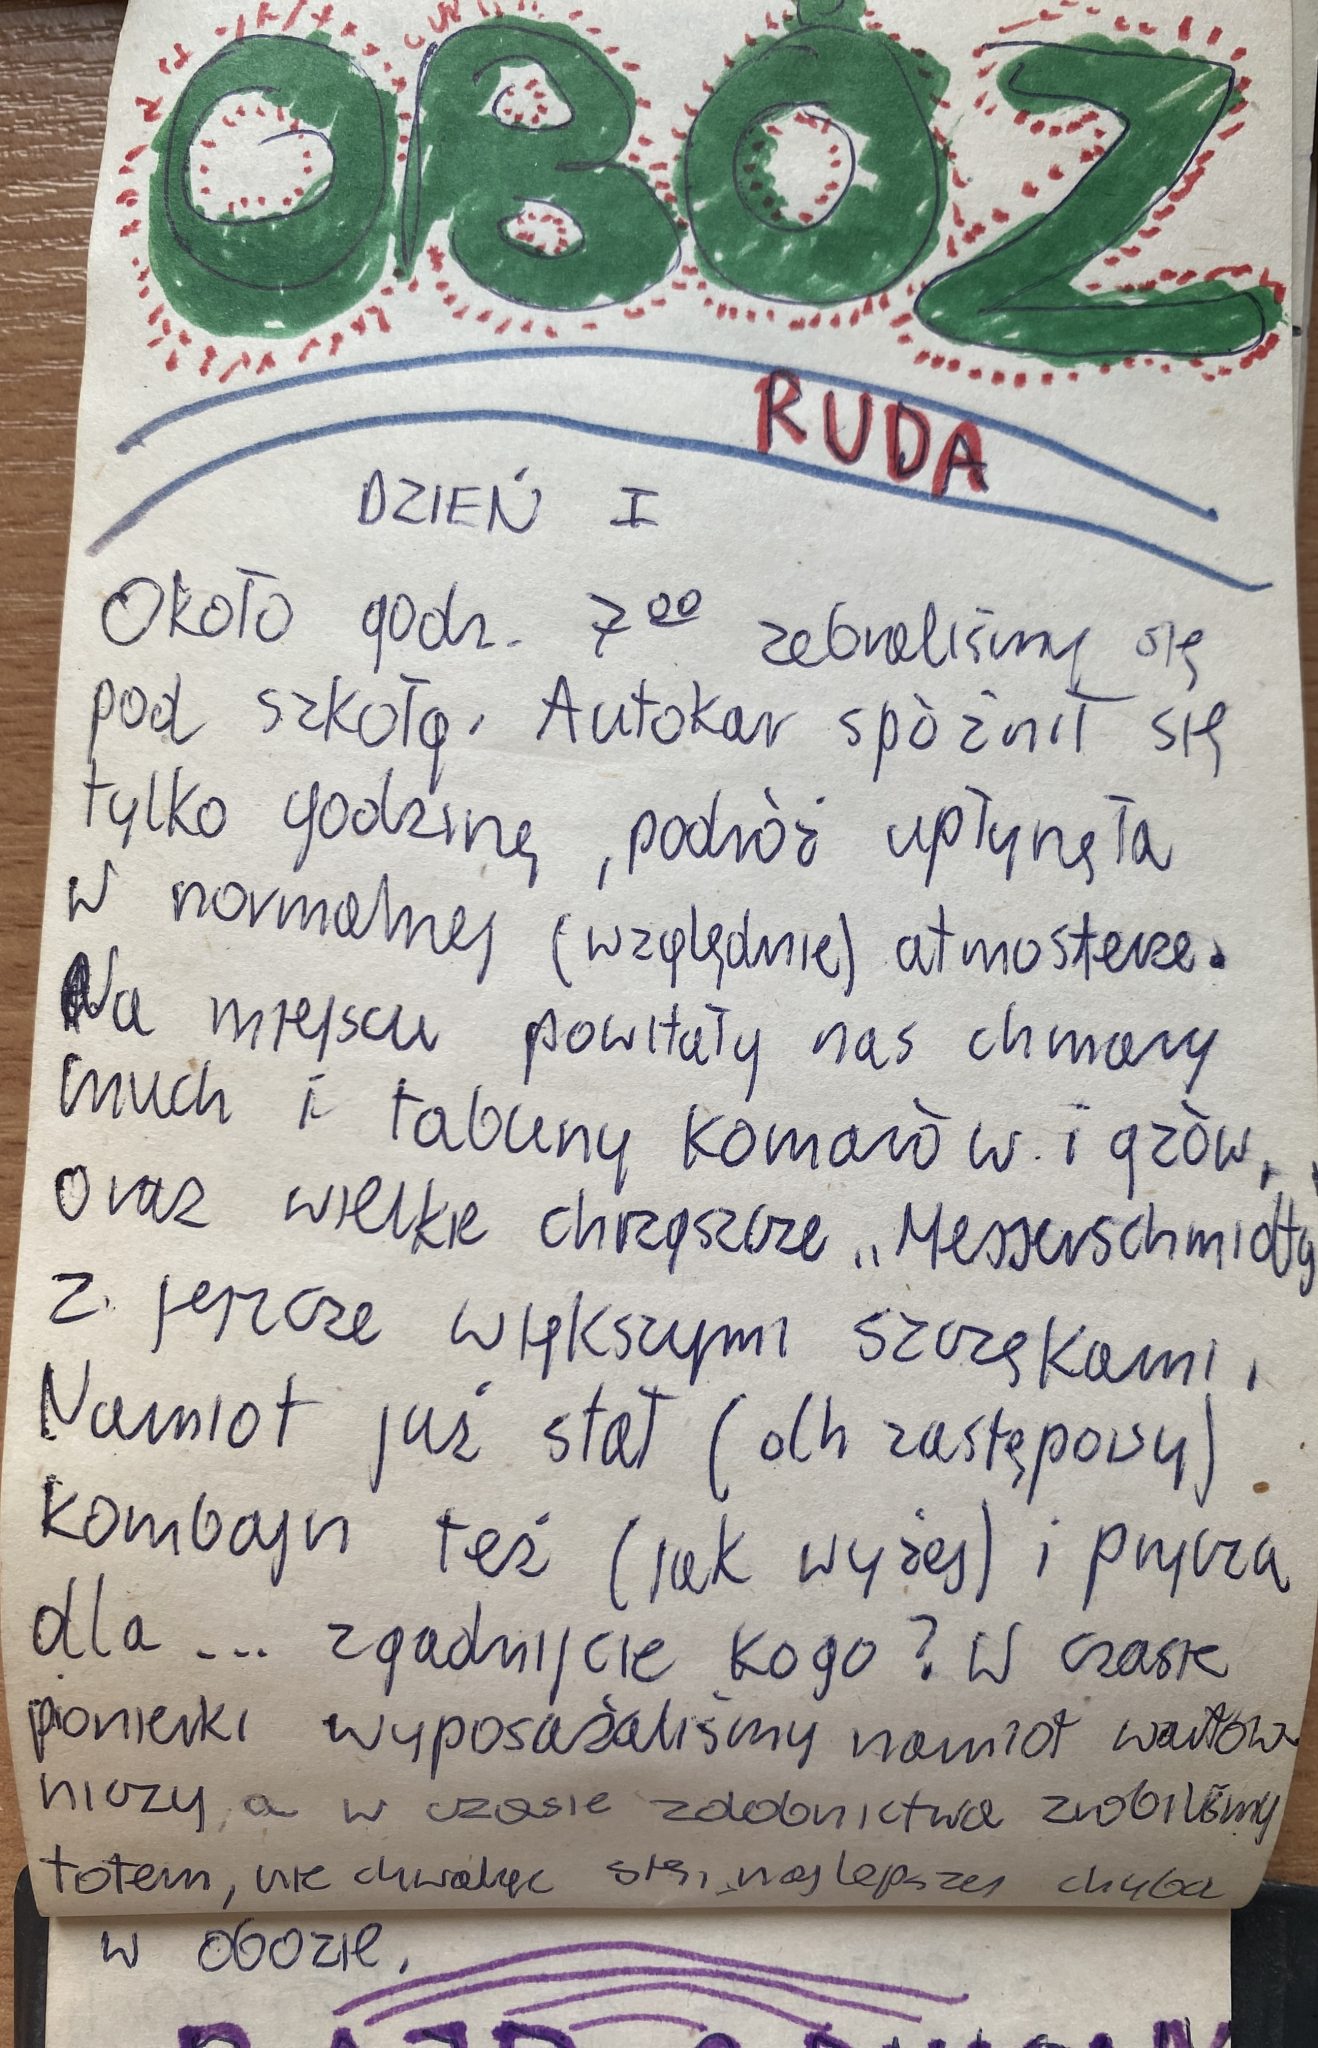 OBÓZ
RUDA
DZIEŃ I
Około godz. 7⁰⁰ zebraliśmy się
pod szkołą. Autokar spóźnił się
tylko godzinę, podróż upłynęła
w normalnej (względnie) atmosferze.
Na miejscu powitały nas chmary
much i tabuny komarów i gzów,
oraz wielkie chrząszcze „Messerschmidty
z jeszcze większymi szczękami.
Namiot już stał (dh zastępowy)
kombajn też (jak wyżej) i prycza
dla ... zgadnijcie kogo? W czasie
pionierki wyposażaliśmy namiot wartow-
niczy, a w czasie zdobnictwa zrobiliśmy
totem, nie chwaląc się, najlepszej chyba
w obozie.